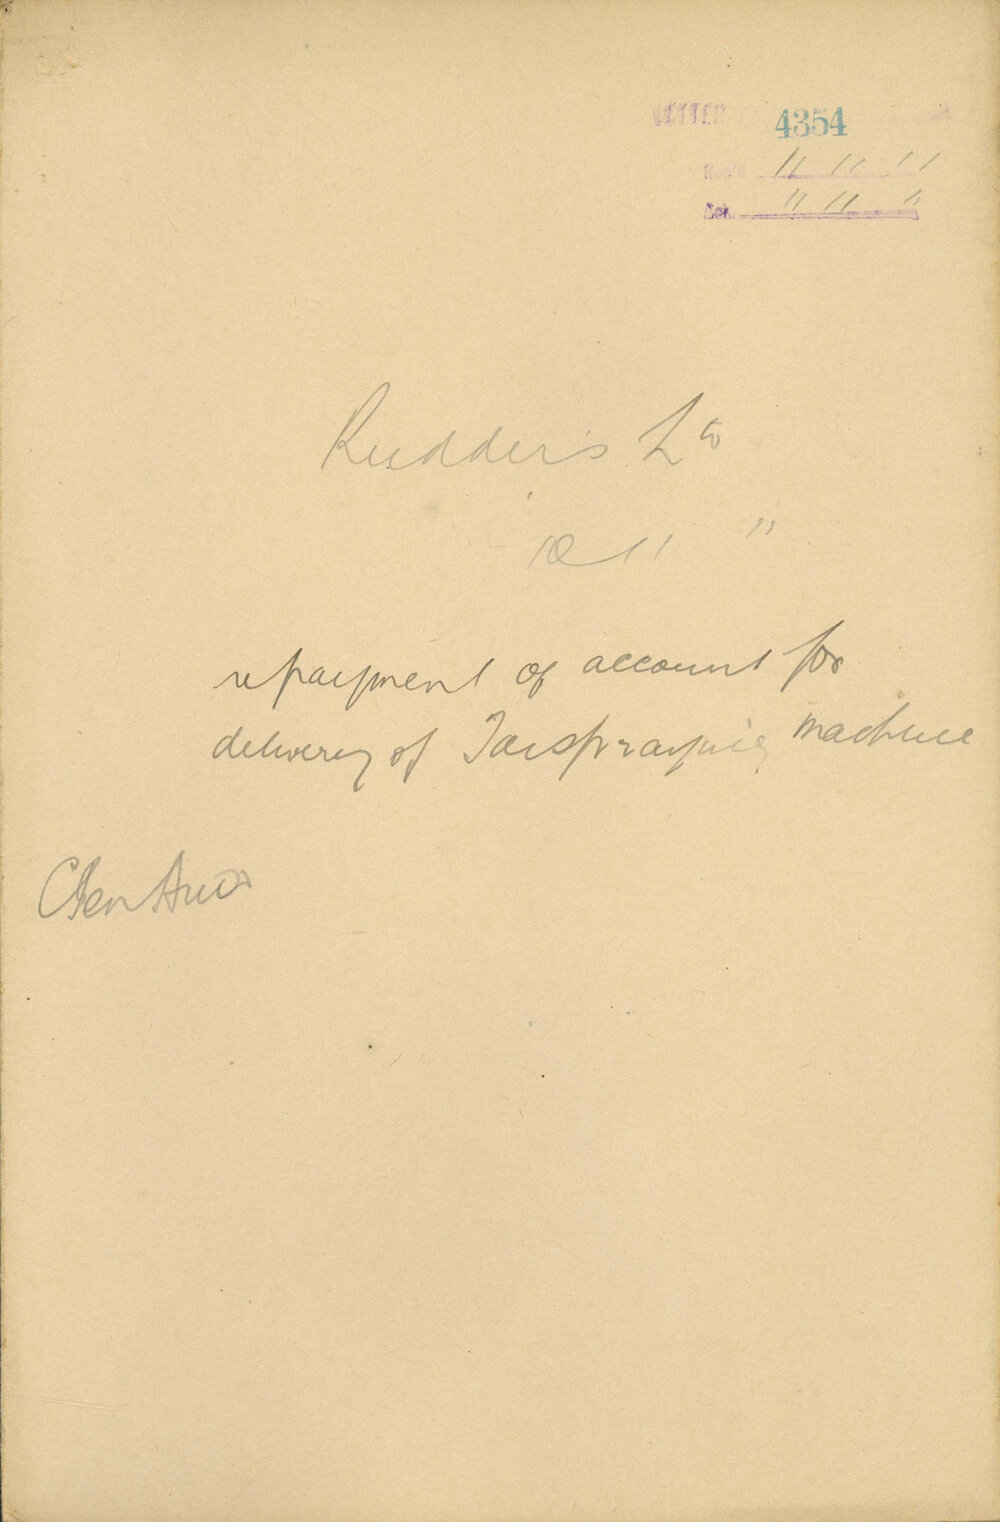 LETTER 4354
Rec'd 11 11 11
Ack. " 11 "
Rudders Ltd
10 11 "
re payment of account for
delivery of Tarspraying machine